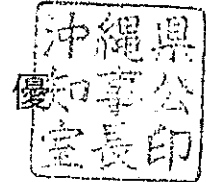 優
沖縄県
知事公
室長印